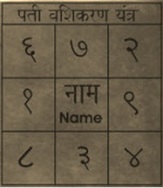 पती वशिकरण यंत्र
६ ७ २
१ नाम ९
Name
८ ३ ४